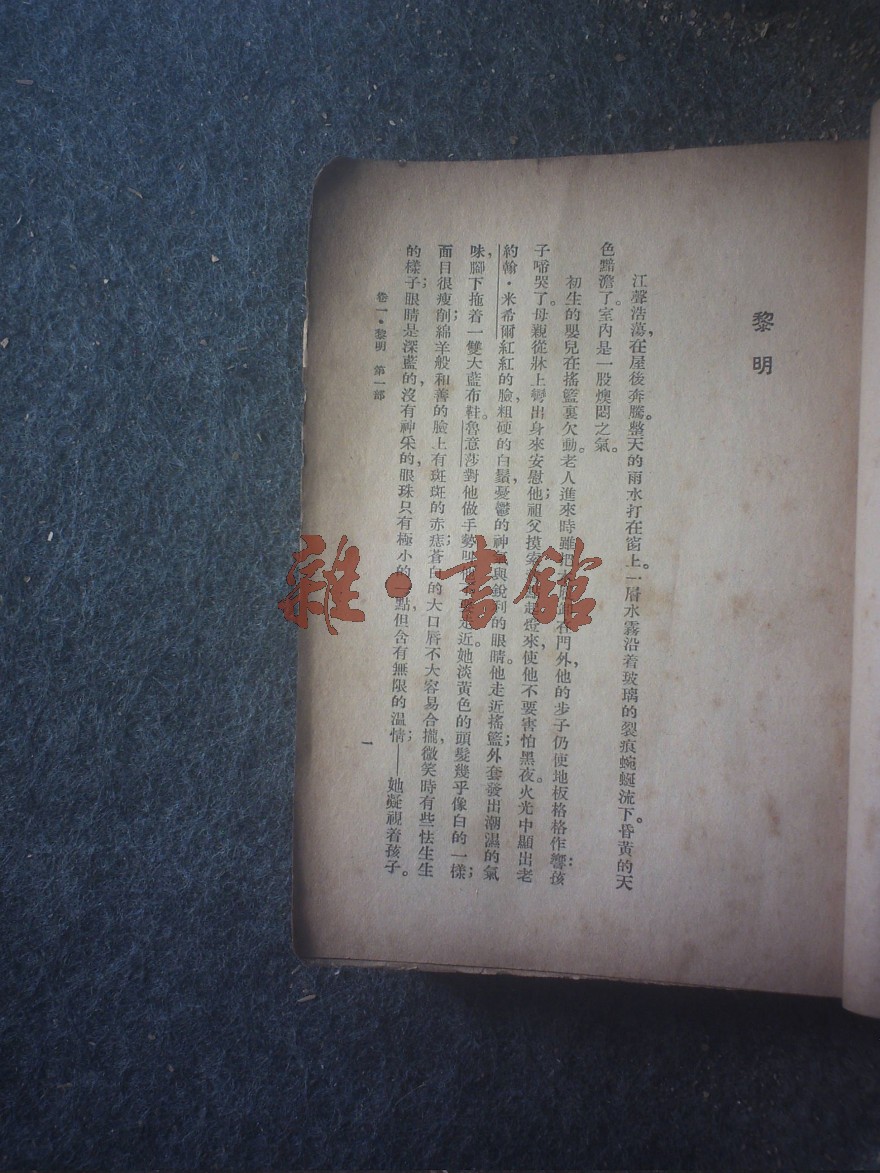 黎明
江聲浩蕩,在屋後奔騰。整天的雨水打在窗上。一層水霧沿着玻璃的裂痕蜿蜒流下。昏黃的天
色黯澹了。室內是一股燠悶之氣。
初生的嬰兒在搖籃裏欠動。老人進來時雖把 在門外,他的步子仍使地板格格作響:孩
子啼哭了。母親從牀上彎出身來安慰他;祖父摸索 燈來,使他不要害怕黑夜。火光中顯出老
約翰·米希爾紅紅的臉,粗硬的白鬚,憂鬱的神 與銳利的眼睛。他走近搖籃;外套發出潮濕的氣
味,腳下拖着一雙大藍布鞋。魯意莎對他做手勢 走近。她淡黃色的頭髮幾乎像白的一樣;
面目很瘦削;綿羊般和善的臉上有斑斑的赤痣;蒼白的大口唇不大容易合攏,微笑時有些怯生生
的樣子;眼睛是深藍的,沒有神采的,眼珠只有極小的一點,但含有無限的溫情;——她凝視着孩子。
卷一·黎明 第一部
一
雜·書館